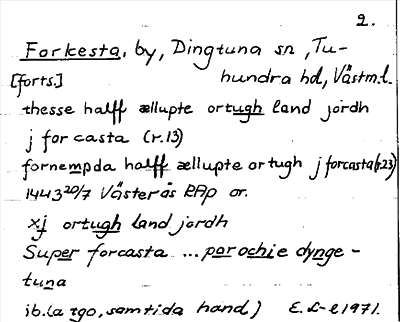 2.
Forkesta, by, Dingtuna sn, Tu-
[forts.] hundra hd, Västm.l.
thesse halff ællupte ortugh land jordh
j for casta (r.13)
fornempda halff ællupte ortugh j forcasta (r.23)
1443 20/7 Västerås RAp or.
xj ortugh land jordh
Super forcasta ... parochie dynge-
tuna
ib. (a tgo, samtida hand) E.L-e 1971.